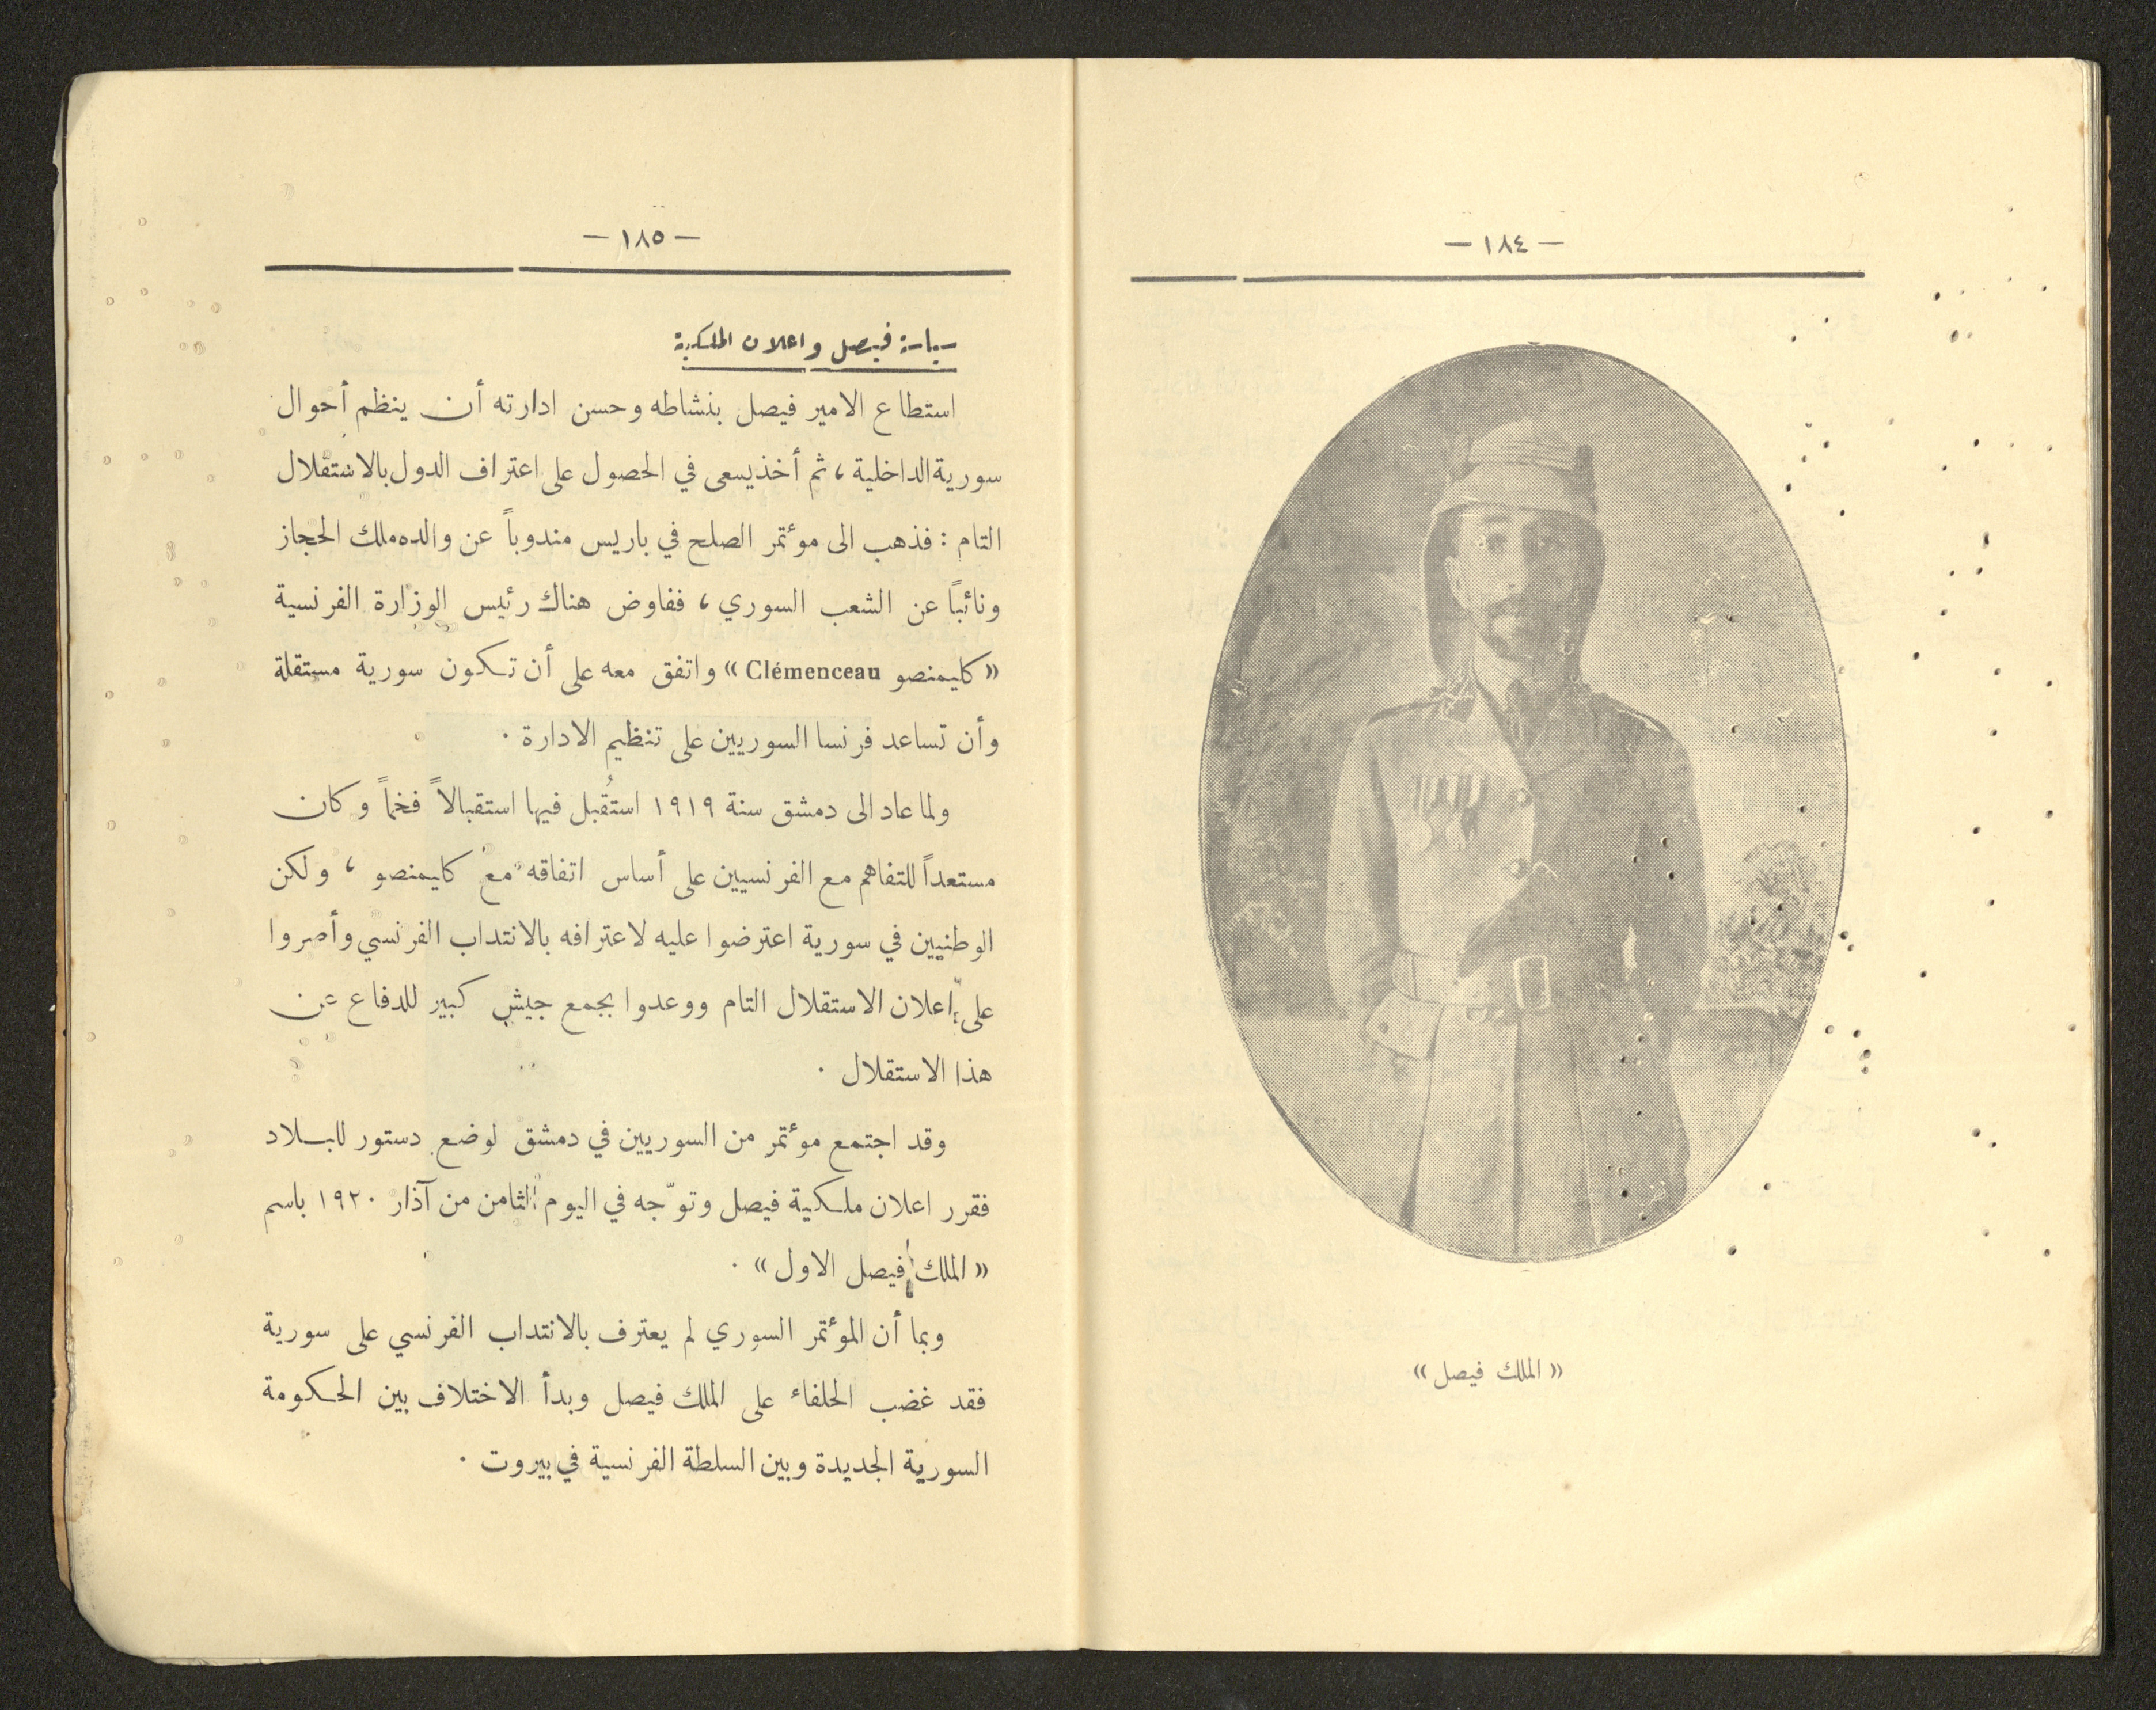 — ١٨٤ —
« الملك فيصل »
— ١٨٥ —
سياسة فيصل واعلان الملكية
استطاع الامير فيصل بنشاطه وحسن ادارته أن ينظم أحوال
سورية الداخلية ، ثم أخذ يسعى في الحصول على اعتراف الدول بالاستقلال
التام : فذهب الى موءتمر الصلح في باريس مندوباً عن والده ملك الحجاز
ونائباً عن الشعب السوري ، ففاوض هناك رئيس الوزارة الفرنسية
« كليمنصو Clémenceau » واتفق معه على أن تكون سورية مستقلة
وأن تساعد فرنسا السوريين على تنظيم الادارة .
ولما عاد الى دمشق سنة ١٩١٩ استُقبل فيها استقبالاً فخماً وكان
مستعداً للتفاهم مع الفرنسيين على أساس اتفاقه مع كليمنصو ، ولكن
الوطنيين في سورية اعترضوا عليه لاعترافه بالانتداب الفرنسي وأصروا
على اعلان الاستقلال التام ووعدوا بجمع جيش كبير للدفاع عن
هذا الاستقلال .
وقد اجتمع موءتمر من السوريين في دمشق لوضع دستور للبلاد
فقرر اعلان ملكية فيصل وتوّجه في اليوم الثامن من آذار ١٩٢٠ باسم
« الملك فيصل الاول » .
وبما أن الموءتمر السوري لم يعترف بالانتداب الفرنسي على سورية
فقد غضب الحلفاء على الملك فيصل وبدأ الاختلاف بين الحكومة
السورية الجديدة وبين السلطة الفرنسية في بيروت .